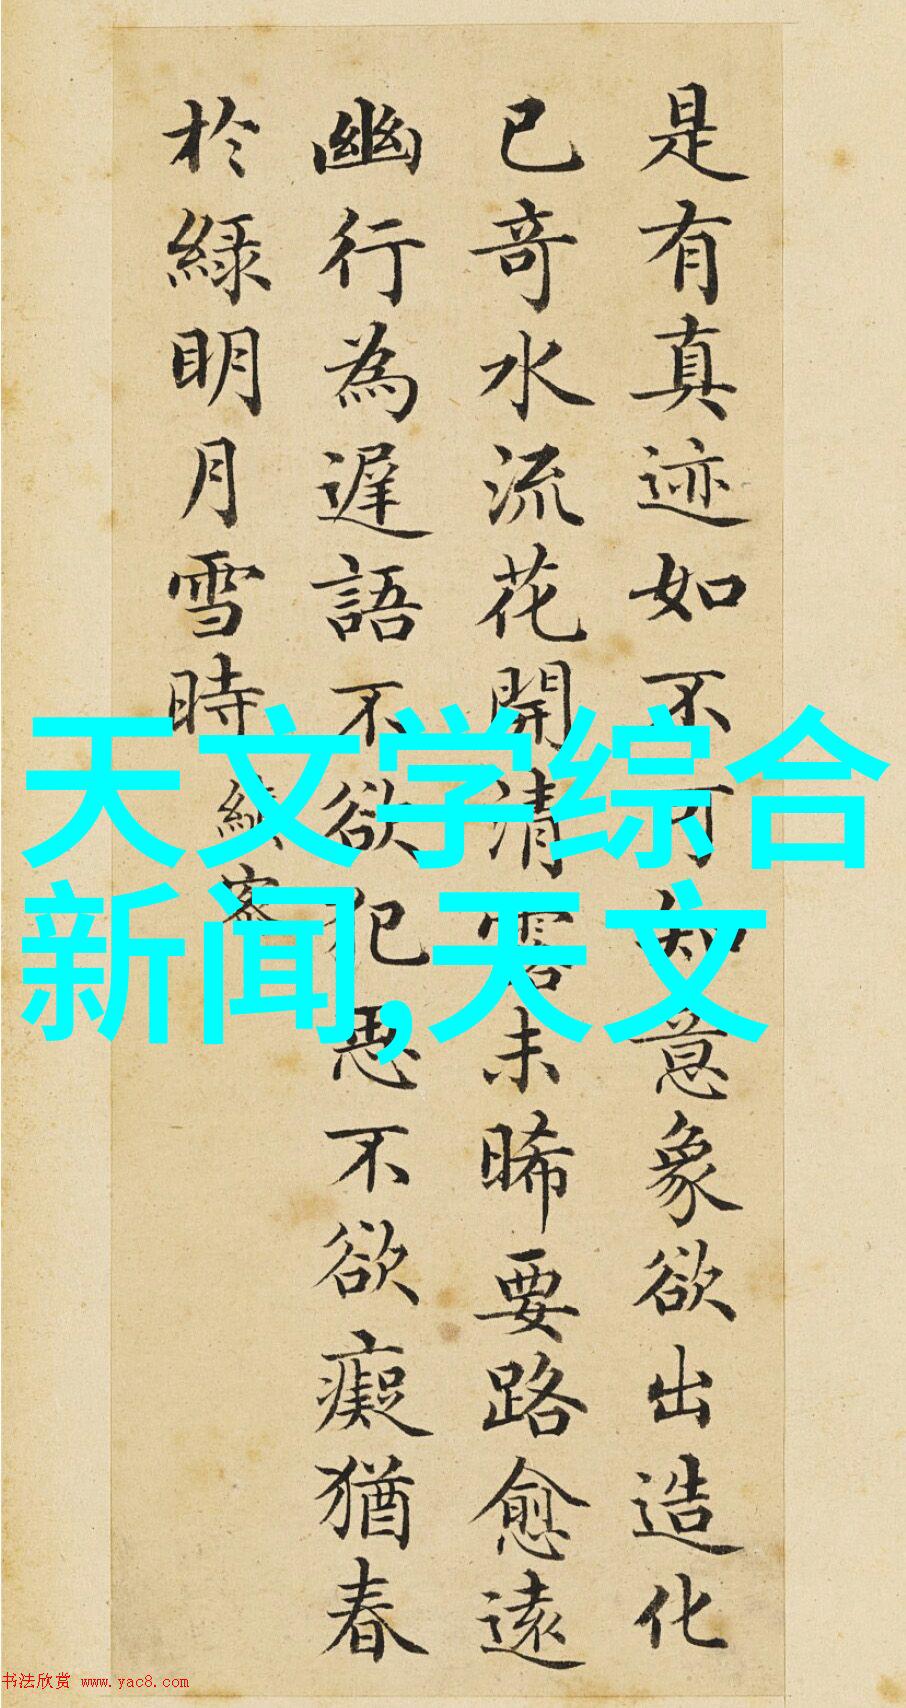 是有真迹如不可知意象欲出造化
已奇水流花開清露未晞要路愈遠
幽行為遲語不欲犯思不欲癡猶春
於綠明月雪時
天文学综合
新闻,天文
书法欣赏 www.yac8.com